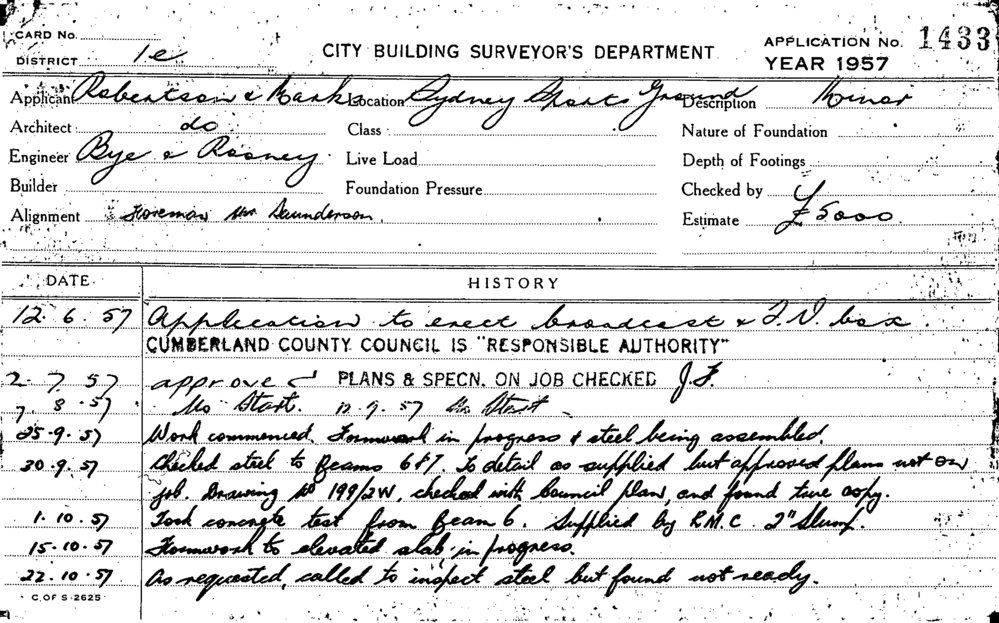 CARD No.
DISTRICT 1e
CITY BUILDING SURVEYOR'S DEPARTMENT
APPLICATION No. 1433
YEAR 1957
Applicant Robertson & Marks Location Sydney Sports Ground Description Minor
Architect do Class Nature of Foundation
Engineer Bye & Rooney Live Load Depth of Footings
Builder Foundation Pressure Checked by
Alignment Foreman Mr Saunderson. Estimate £5000
DATE HISTORY
12.6.57 Application to erect broadcast & T.V. box.
CUMBERLAND COUNTY COUNCIL IS "RESPONSIBLE AUTHORITY"
2.7.57 approved PLANS & SPECN. ON JOB CHECKED J.F.
7.8.57 No Start. 12.9.57 No Start
25.9.57 Work commenced. Formwork in progress & steel being assembled.
30.9.57 Checked steel to Beams 6&7. To detail as supplied but approved plans not on
job. Drawing No 199/2W, checked with Council plan, and found true copy.
1.10.57 Took concrete test from Beam 6. Supplied by R.M.C. 2" Slump.
15.10.57 Formwork to elevated slab in progress.
22.10.57 As requested, called to inspect steel but found not ready.
C. OF S. 2625